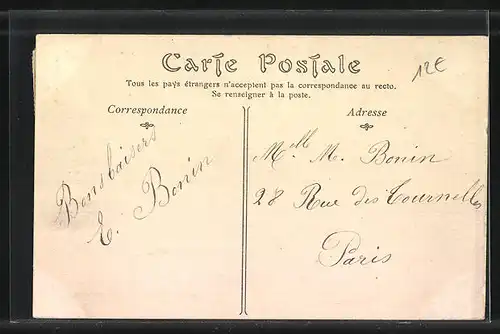 Carte Postale
12€
Tous les pays étrangers n'acceptent pas la correspondance au recto.
Se renseigner à la poste.
Correspondance
Adresse
Bons baisers
E. Bonin
Melle M. Bonin
28 Rue des Tournelles
Paris